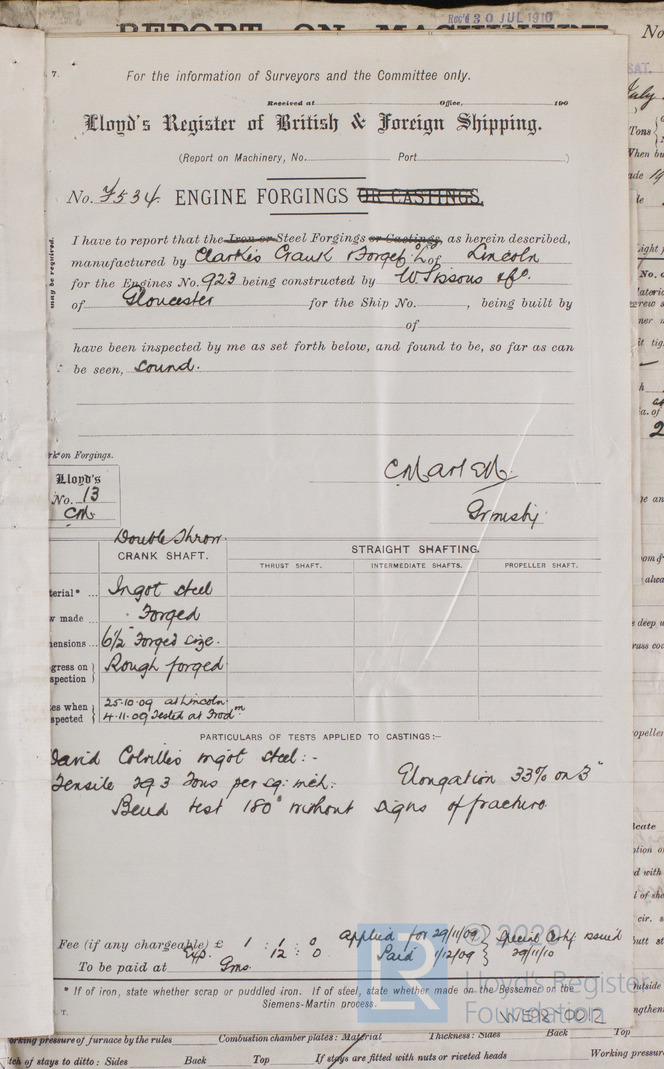 Rec'd 30 JUL 1910
REPORT ON MACHINERY
No
7.
For the information of Surveyors and the Committee only.
Received at Office, 190
Lloyd's Register of British & Foreign Shipping.
(Report on Machinery, No. Port )
No. 7534. ENGINE FORGINGS OR CASTINGS.
I have to report that the Iron or Steel Forgings or Castings, as herein described,
manufactured by Clarke's Crank & Forge Co Ld of Lincoln
for the Engines No. 923 being constructed by W Sissons & Co.
of Gloucester for the Ship No. , being built by
of
have been inspected by me as set forth below, and found to be, so far as can
be seen, sound.
may be required.
rk on Forgings.
Lloyd's
No. 13
CM.
Ormesby
Double Throw.
CRANK SHAFT.
STRAIGHT SHAFTING.
THRUST SHAFT. INTERMEDIATE SHAFTS. PROPELLER SHAFT.
terial* ... Ingot steel
w made ... Forged
ensions ... 6½" Forged size.
gress on
spection } Rough forged
es when
spected } 25.10.09 at Lincoln
4.11.09 Tested at Frodm
PARTICULARS OF TESTS APPLIED TO CASTINGS:—
David Colville's ingot steel:-
Tensile 29.3 Tons per sq: inch:- Elongation 33% on 3"
Bend test 180° without signs of fracture
Fee (if any chargeable) £ 1 : 1 : 0 Applied for 29/11/09
Exp. 12 : 0 Paid 1/12/09 } Special Certif issued
29/11/10
To be paid at Gms.
* If of iron, state whether scrap or puddled iron. If of steel, state whether made on the Bessemer or the
Siemens-Martin process.
T.
© 2020
Lloyd's Register
Foundation
W592-0012
orking pressure of furnace by the rules Combustion chamber plates: Material Thickness: Sides Back Top
itch of stays to ditto: Sides Back Top If stays are fitted with nuts or riveted heads Working pressure